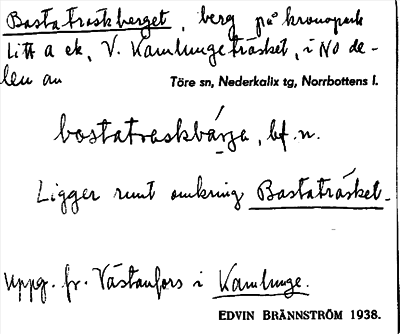 Bastatraskberget, berg på kronopark
Litt a ek, V. Kamlungeträsket, i NO de-
len av Töre sn, Nederkalix tg, Norrbottens l.
bastatraskbárja, bf. n.
Ligger runt omkring Bastaträsket.
Uppg. fr. Västanfors i Kamlunge.
EDVIN BRÄNNSTRÖM 1938.